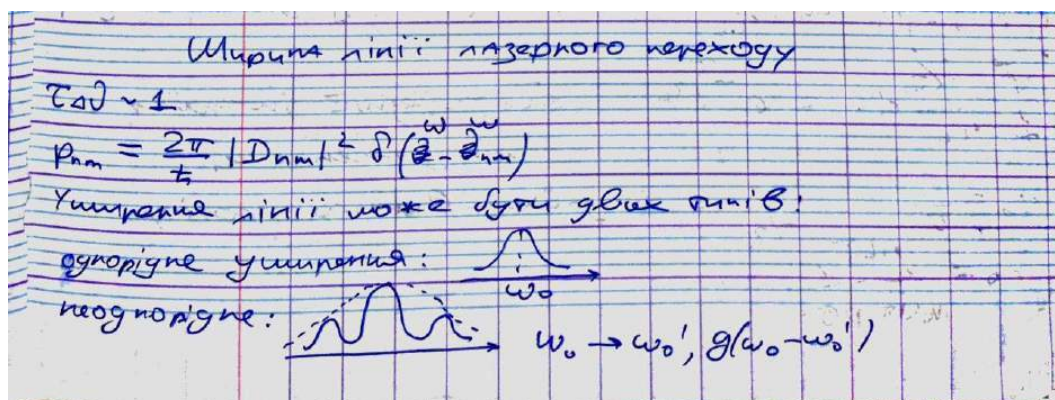 Ширина лінії лазерного переходу
τΔ∂ ~ 1
Pnm = 2π/ħ |Dnm|² δ(ω - ωnm)
Уширення лінії може бути двох типів:
однорідне уширення:
ω₀
неоднорідне:
ω₀ → ω₀', g(ω₀-ω₀')